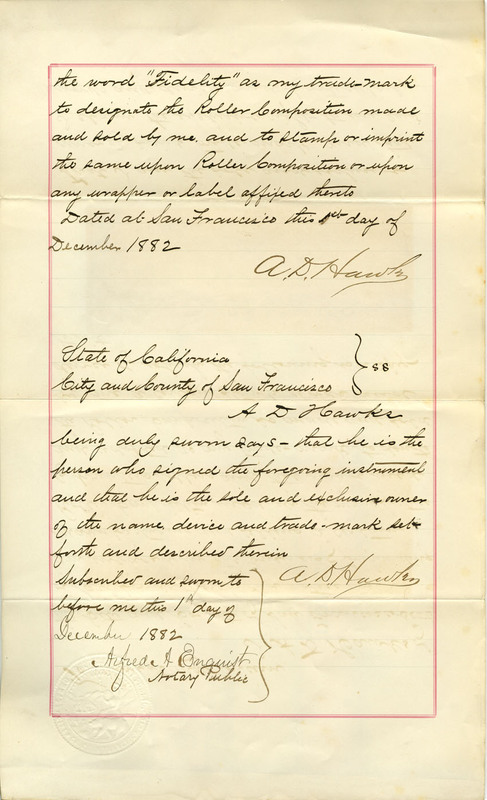 the word "Fidelity" as my trade-mark
to designate the Roller Composition made
and sold by me, and to stamp or imprint
the same upon Roller Composition or upon
any wrapper or label affixed thereto
Dated at San Francisco this 1st day of
December 1882
A. D. Hawks
State of California
City and County of San Francisco } ss
A D Hawks
being duly sworn says - that he is the
person who signed the foregoing instrument
and that he is the sole and exclusive owner
of the name, device and trade-mark set
forth and described therein
A. D. Hawks
Subscribed and sworn to
before me this 1st day of
December 1882
Alfred A Enquist
Notary Public